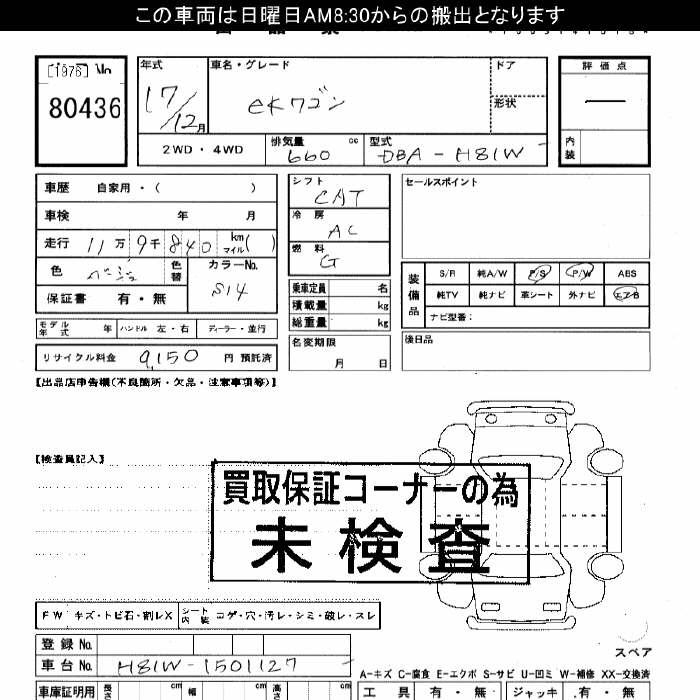 この車両は日曜日AM8:30からの搬出となります
[1976] No
80436
年式 車名・グレード ドア 評価点
17/12月 eKワゴン 形状
2WD・4WD 排気量 660 cc 型式 DBA-H81W 内装
車歴 自家用・( ) シフト CAT セールスポイント
車検 年 月 冷房 AC
走行 11万9千840 km マイル( ) 燃料 G
色 ベージュ 色替 カラーNo. S14
装備品 S/R 純A/W P/S P/W ABS
保証書 有・無 乗車定員 名 純TV 純ナビ 革シート 外ナビ エアB
積載量 kg ナビ型番:
モデル年式 年 ハンドル 左・右 ディーラー・並行 総重量 kg
リサイクル料金 9,150 円 預託済 名変期限 月 日 後日品
【出品店申告欄(不良箇所・欠品・注意事項等)】
【検査員記入】
買取保証コーナーの為
未検査
FW キズ・トビ石・割レX シート内装 コゲ・穴・汚レ・シミ・破レ・スレ
登録No.
スペア
車台No. H81W-1501127
A-キズ C-腐食 E-エクボ S-サビ U-凹ミ W-補修 XX-交換済
車庫証明用 長さ cm 幅 cm 高さ cm 工具 有・無 ジャッキ 有・無